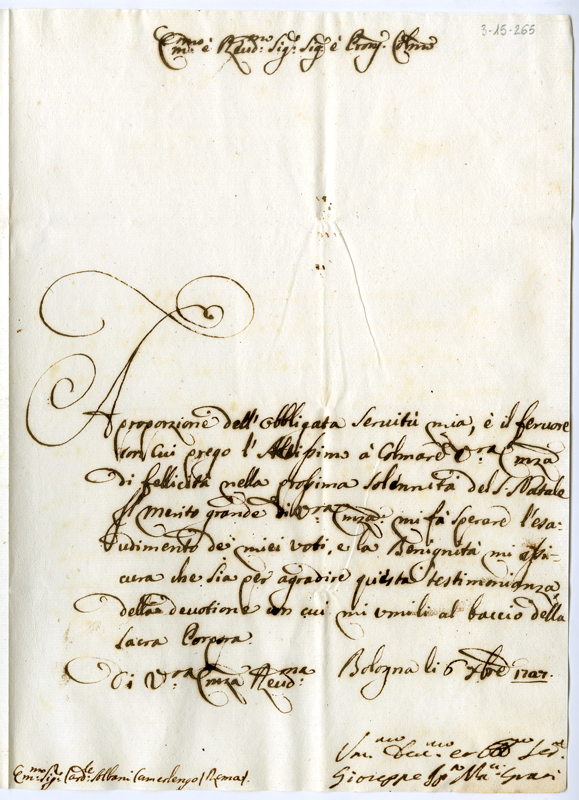 3-15-265
Em.mo è Reud.mo Sig.r Sig.r è Pron. Colmo
A proporzione dell'obbligata servitù mia, è il fervore
con cui prego l'Altissimo à Colmare V.ra Emza
di fellicità nella prosima solennità del S. Natale
Il merito grande di V.ra Emza mi fà sperare l'esa-
udimento dei miei voti, e la Benignità mi assi-
cura che sia per agradire questa testimonianza
della devotione con cui mi umilij al baccio della
sacra Porpora.
Di V.ra Emza Reud.ma Bologna li 6 Xbre 1727.
Um.mo Deu.mo et Ser.re
Em.mo Sig.r Card.le Albani Camerlengo / Roma /. Gioseppe